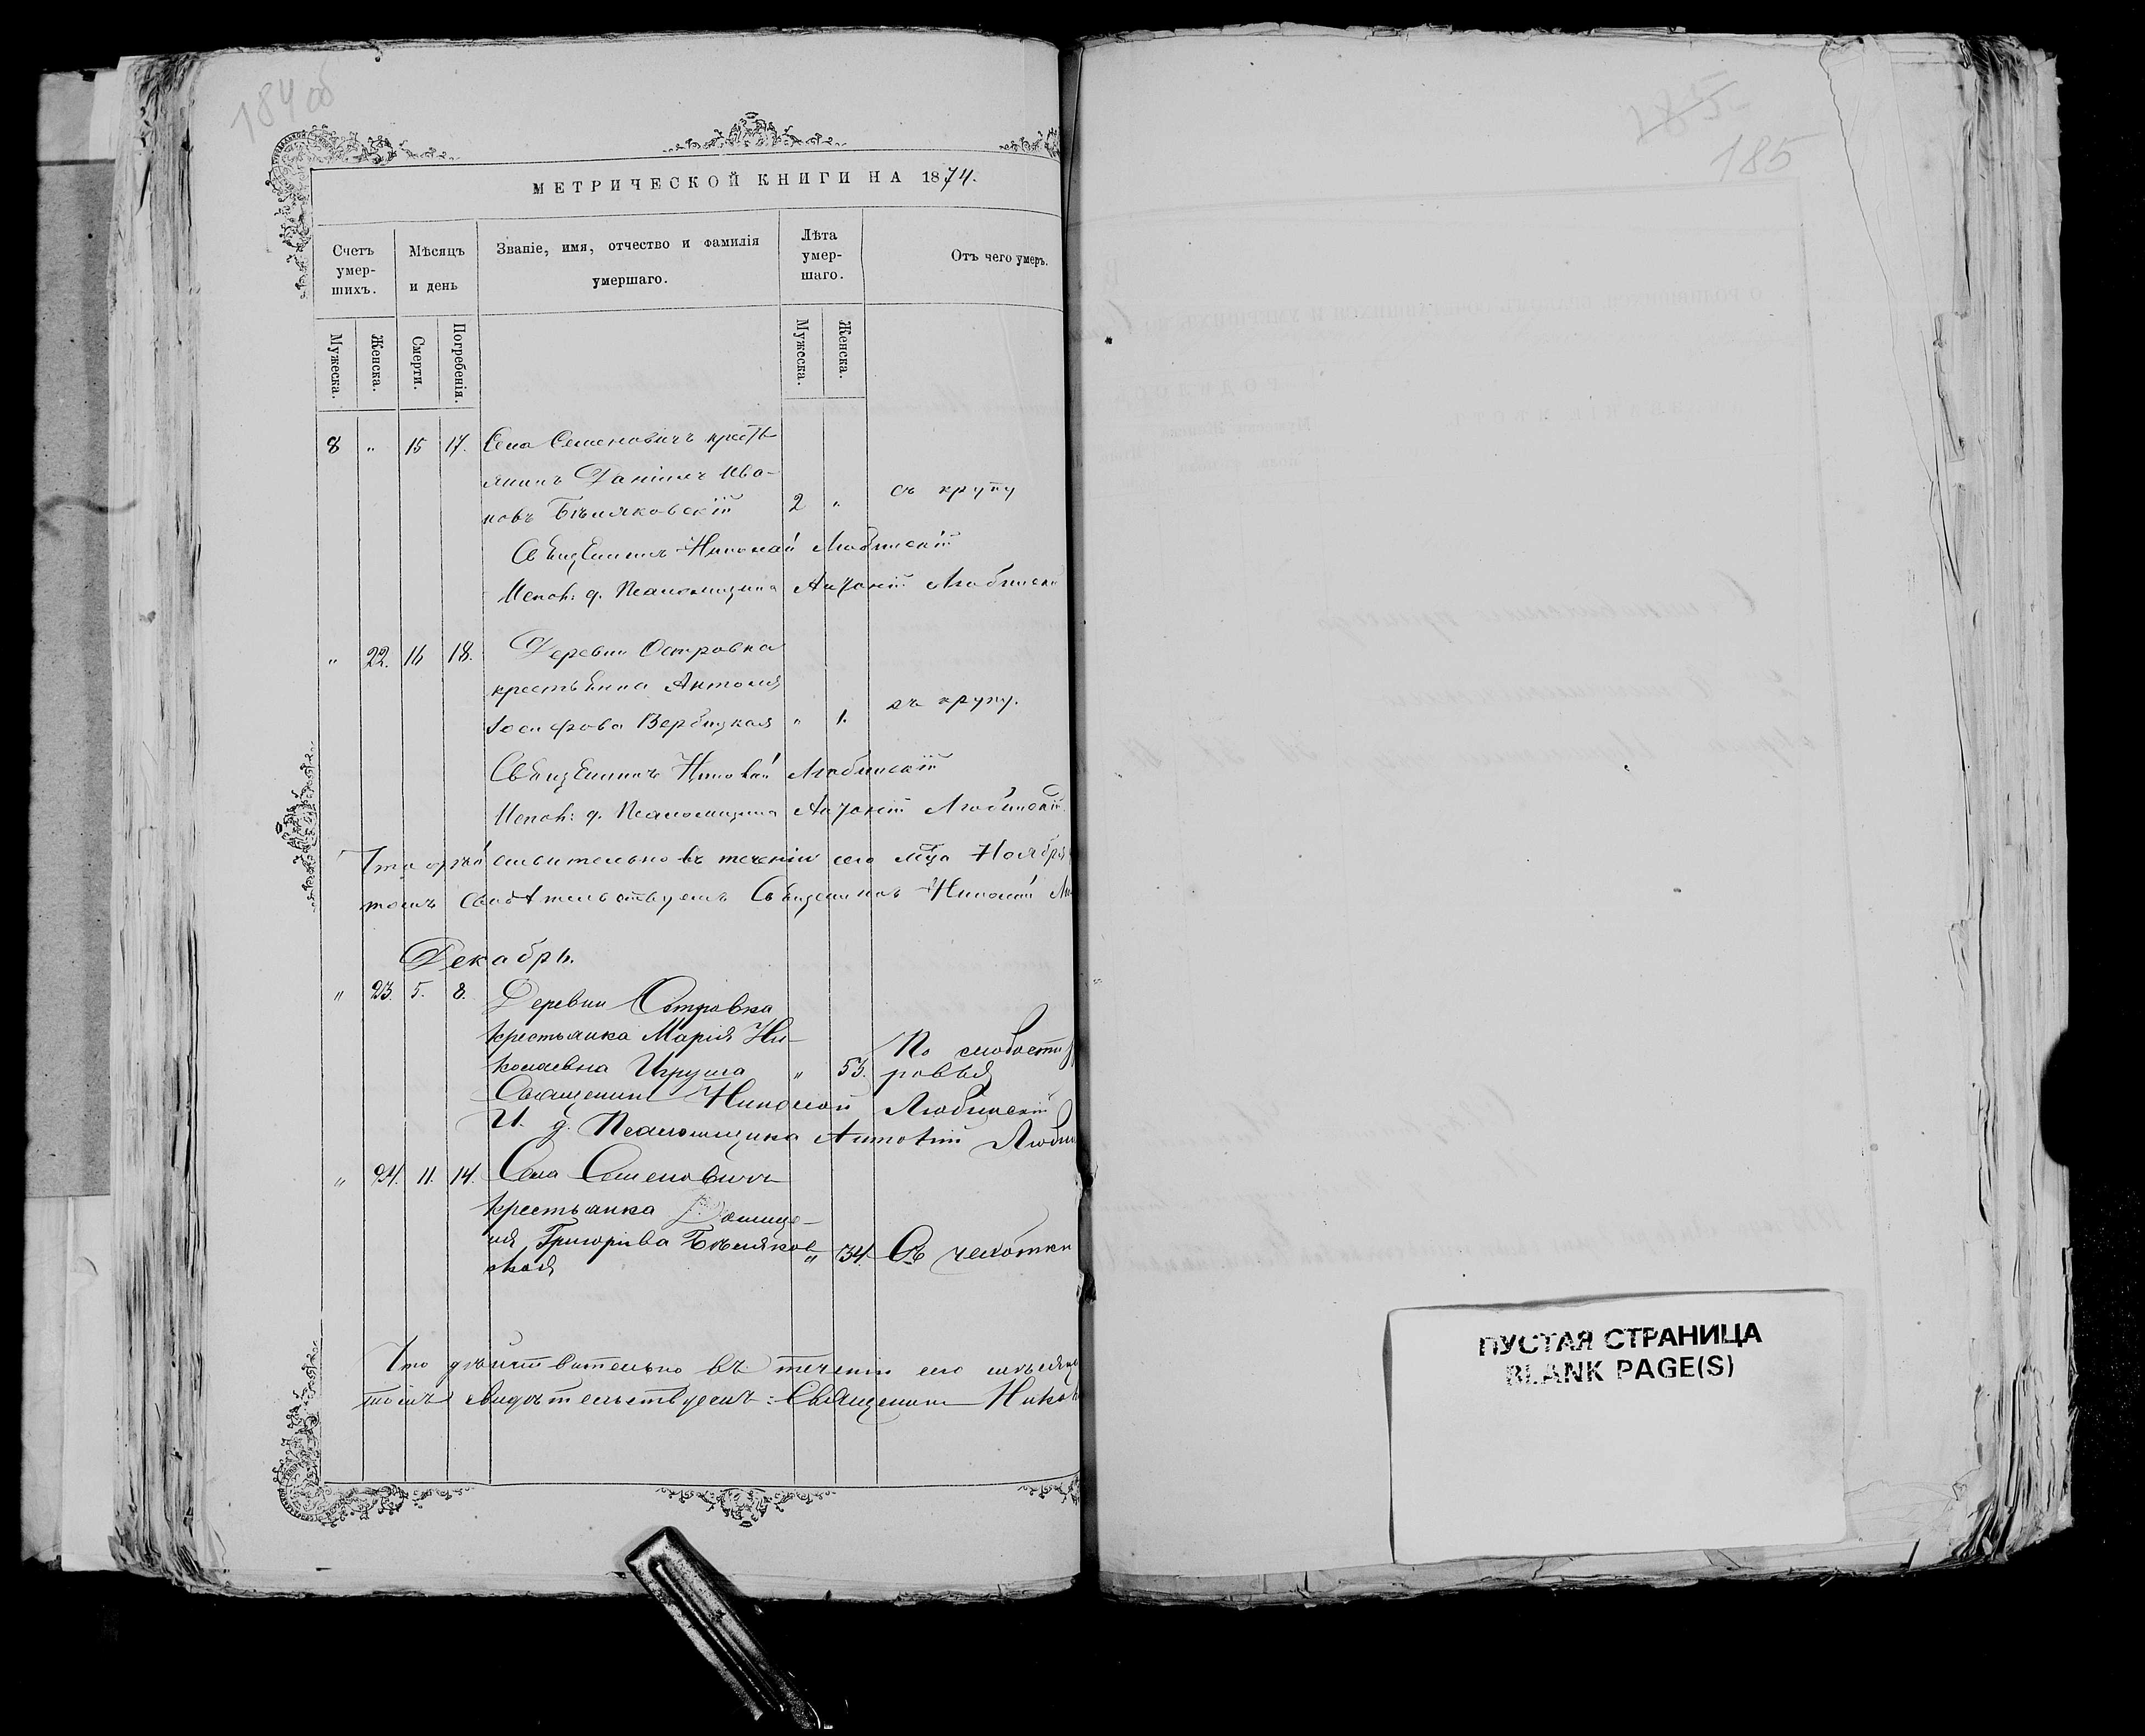 184 об
МЕТРИЧЕСКОЙ КНИГИ НА 1874.
Счетъ умер-шихъ.
Мѣсяцъ и день
Званіе, имя, отчество и фамилія умершаго.
Лѣта умер-шаго.
Отъ чего умеръ.
Мужеска.
Женска.
Смерти.
Погребенія.
Мужеска.
Женска.
8 " 15 17. Села Семеновичъ крестъ-
янинъ Даніилъ Ива-
новъ Бѣляковскій 2 " съ крупу
Священникъ Николай Любинскій
Испол: д. Псаломщика Антоній Любинскі
" 22. 16 18. Деревни Островка
крестьянка Антонія
Іосифова Вербицкая " 1. съ крупу.
Священникъ Николай Любинскій
Испол: д. Псаломщика Антоній Любинскій
Что дѣйствительно въ теченіи сего мѣца Ноября
томъ свидѣтельствуемъ Священникъ Николай
Декабрь.
" 23. 5. 8. Деревни Островка
крестьянка Марія Ни-
колаевна " 55. По слабости
ровья
Священникъ Николай Любинскій
И. д. Псаломщика Антоній Любин
" 24. 11. 14. Села Семеновичъ
крестьянка Домице-
ля Григоріева Бѣляков-
ская " 34. Съ чахотки
Что дѣйствительно въ теченіи сего мѣсяца
томъ свидѣтельствуемъ: Священникъ Никол
185
185
ПУСТАЯ СТРАНИЦА
BLANK PAGE(S)